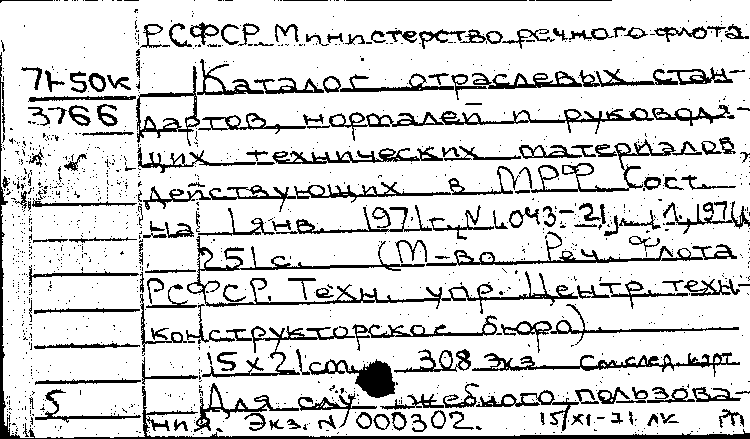 РСФСР. Министерство речного флота
71-50к
3766
Каталог отраслевых стан-
дартов, нормалей и руководя-
щих технических материалов,
действующих в МРФ. Сост.
на 1 янв. 1971 г. N 1.043-21
251 с. (М-во Реч. Флота
РСФСР. Техн. упр. Центр. техн-
конструкторское бюро).
15х21 cm 308 экз См. след. карт
5
Для служебного пользова-
ния. Экз. N 000302. 15/XI-71 ЛК